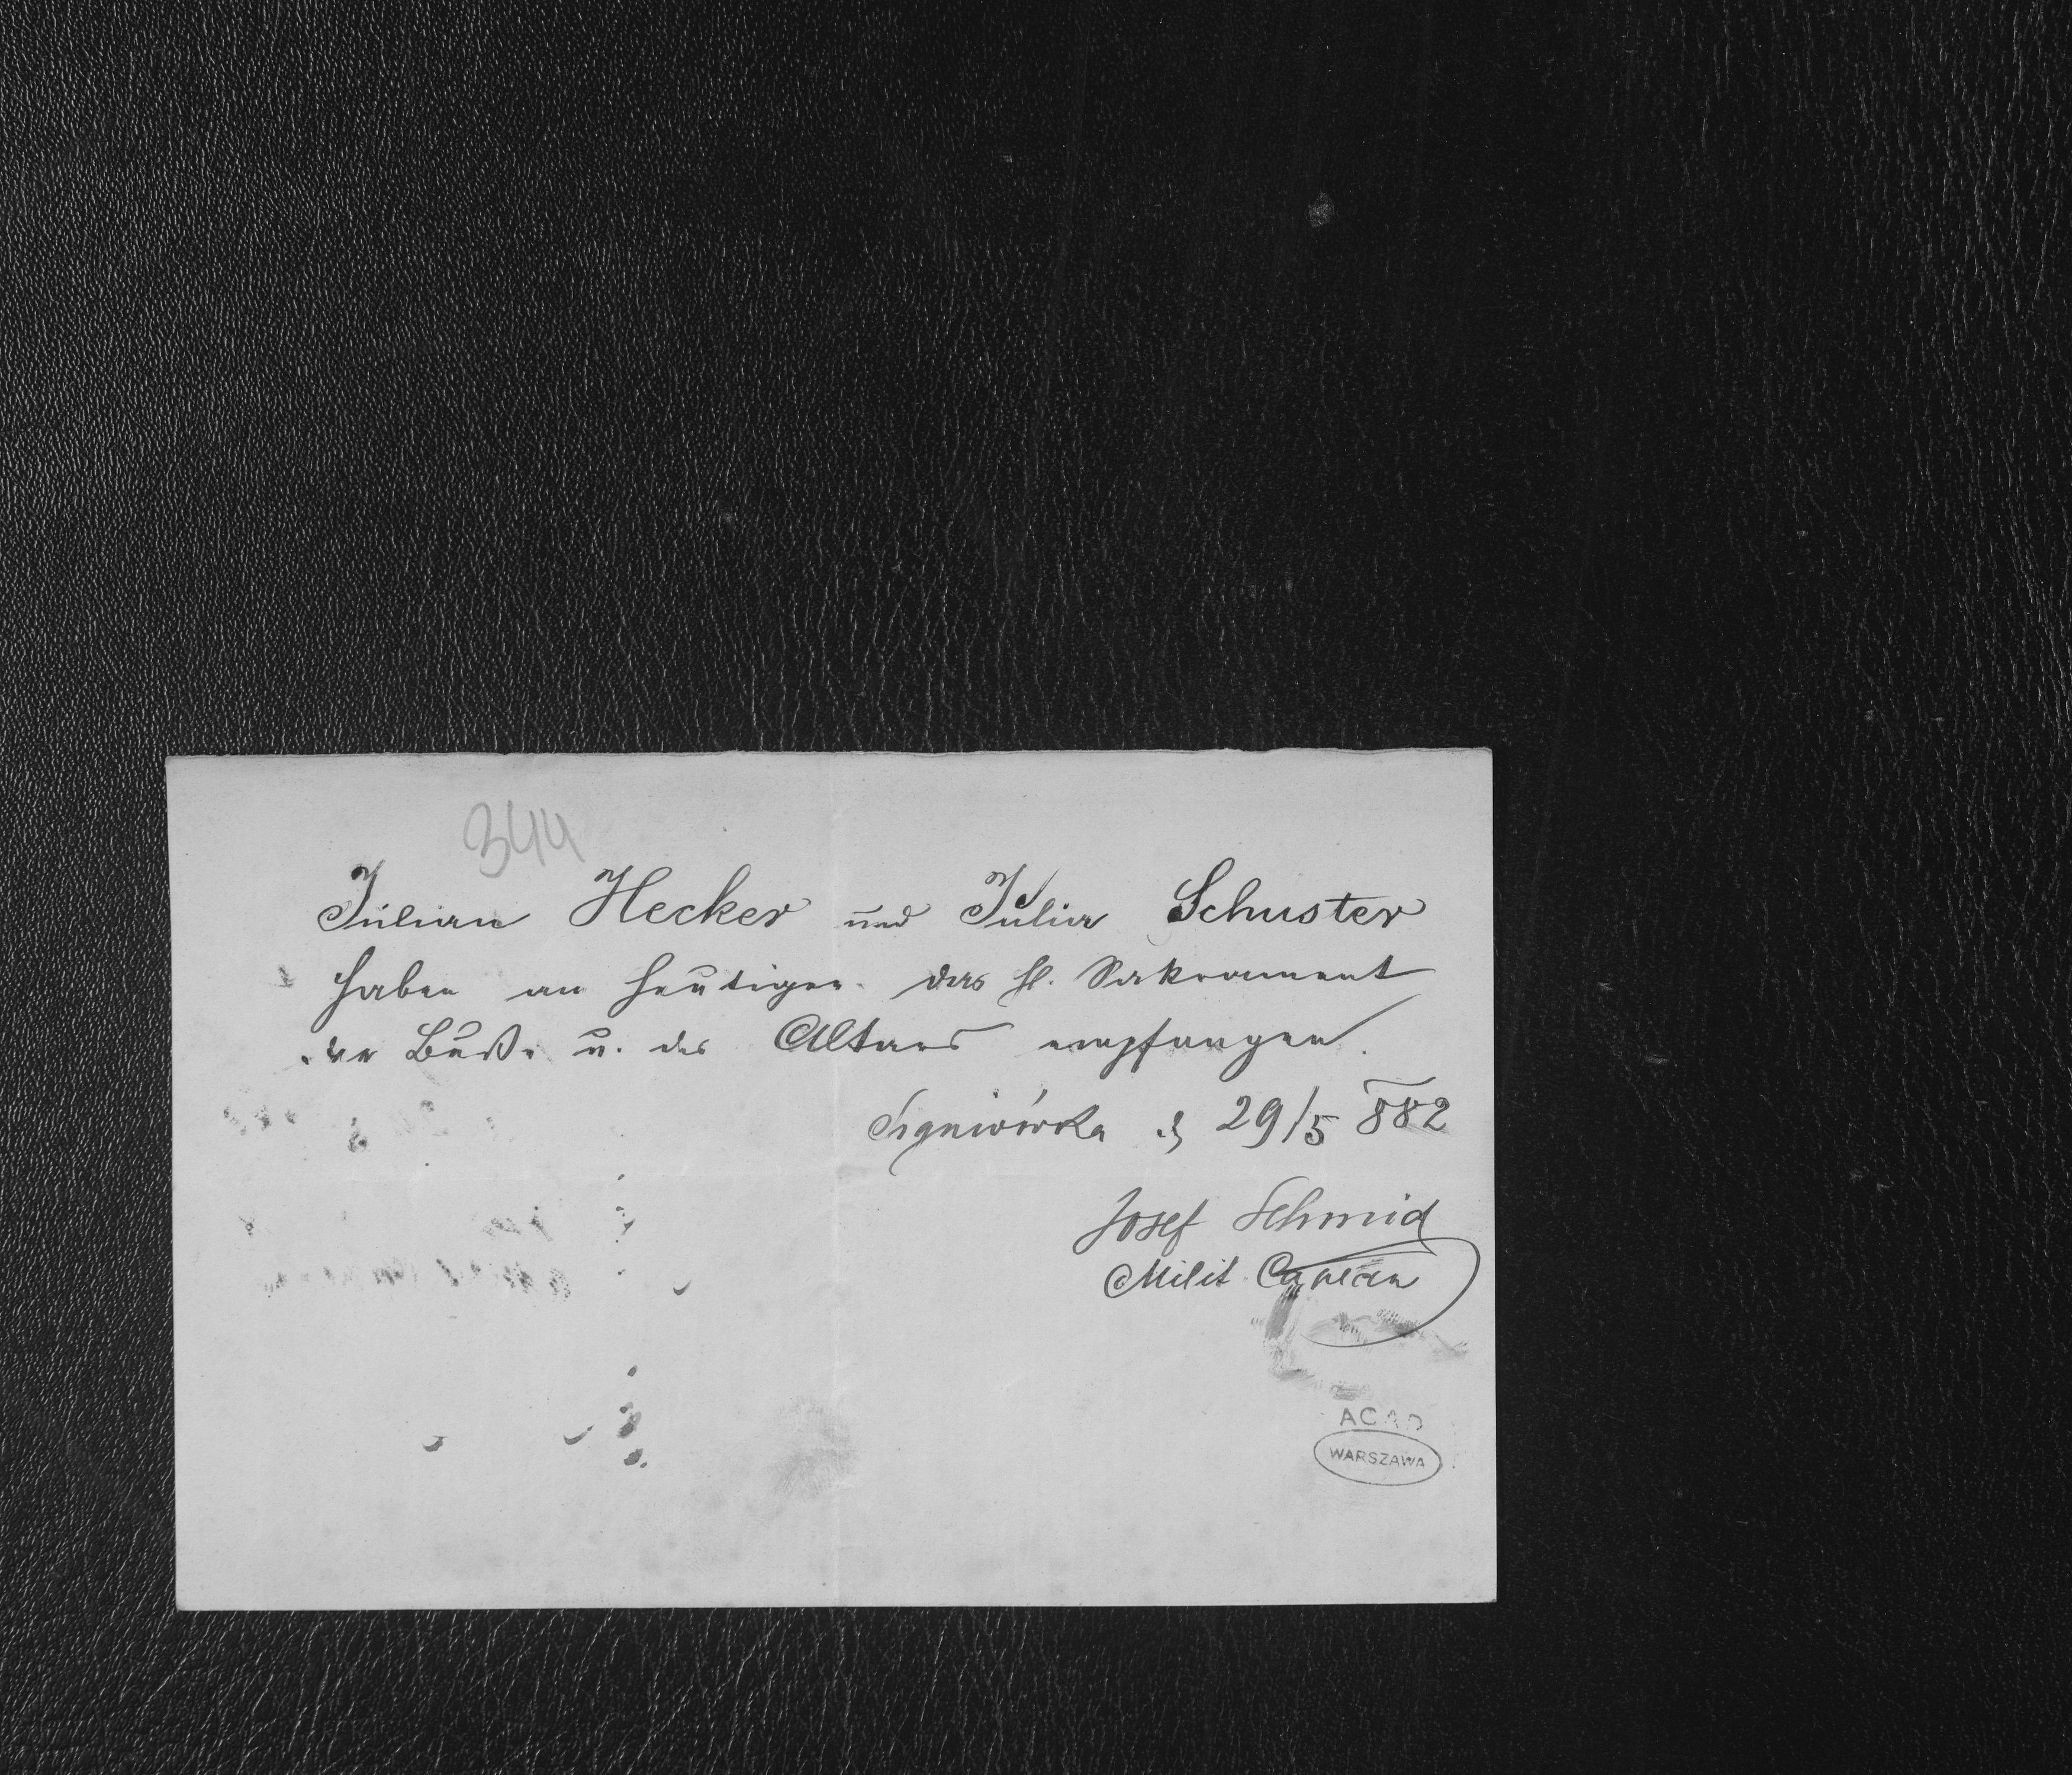 344
Julian Hecker und Julia Schuster
haben am heutigen das hl. Sakrament
der Buße u. des Altars empfangen.
Sygniówka d 29/5 882
Josef Schmid
Milit Caplan
ACAD
WARSZAWA